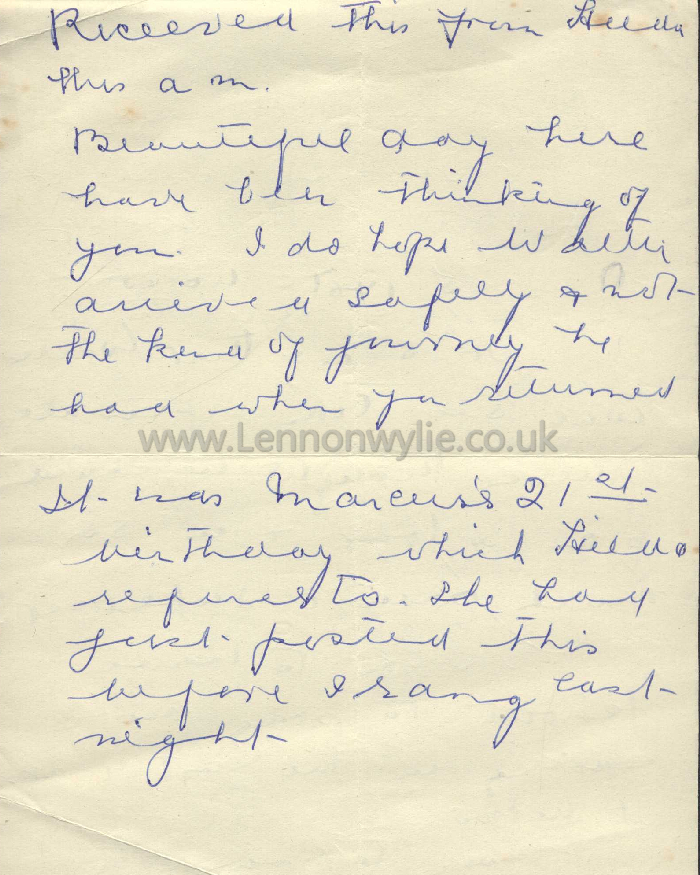 Received this from Hilda
this a m.
Beautiful day here
have been thinking of
you. I do hope Walter
arrived safely & not
the kind of journey he
had when you returned
www.Lennonwylie.co.uk
It was Marcus's 21st
birthday which Hilda
refers to. She had
just posted this
before I rang last
night